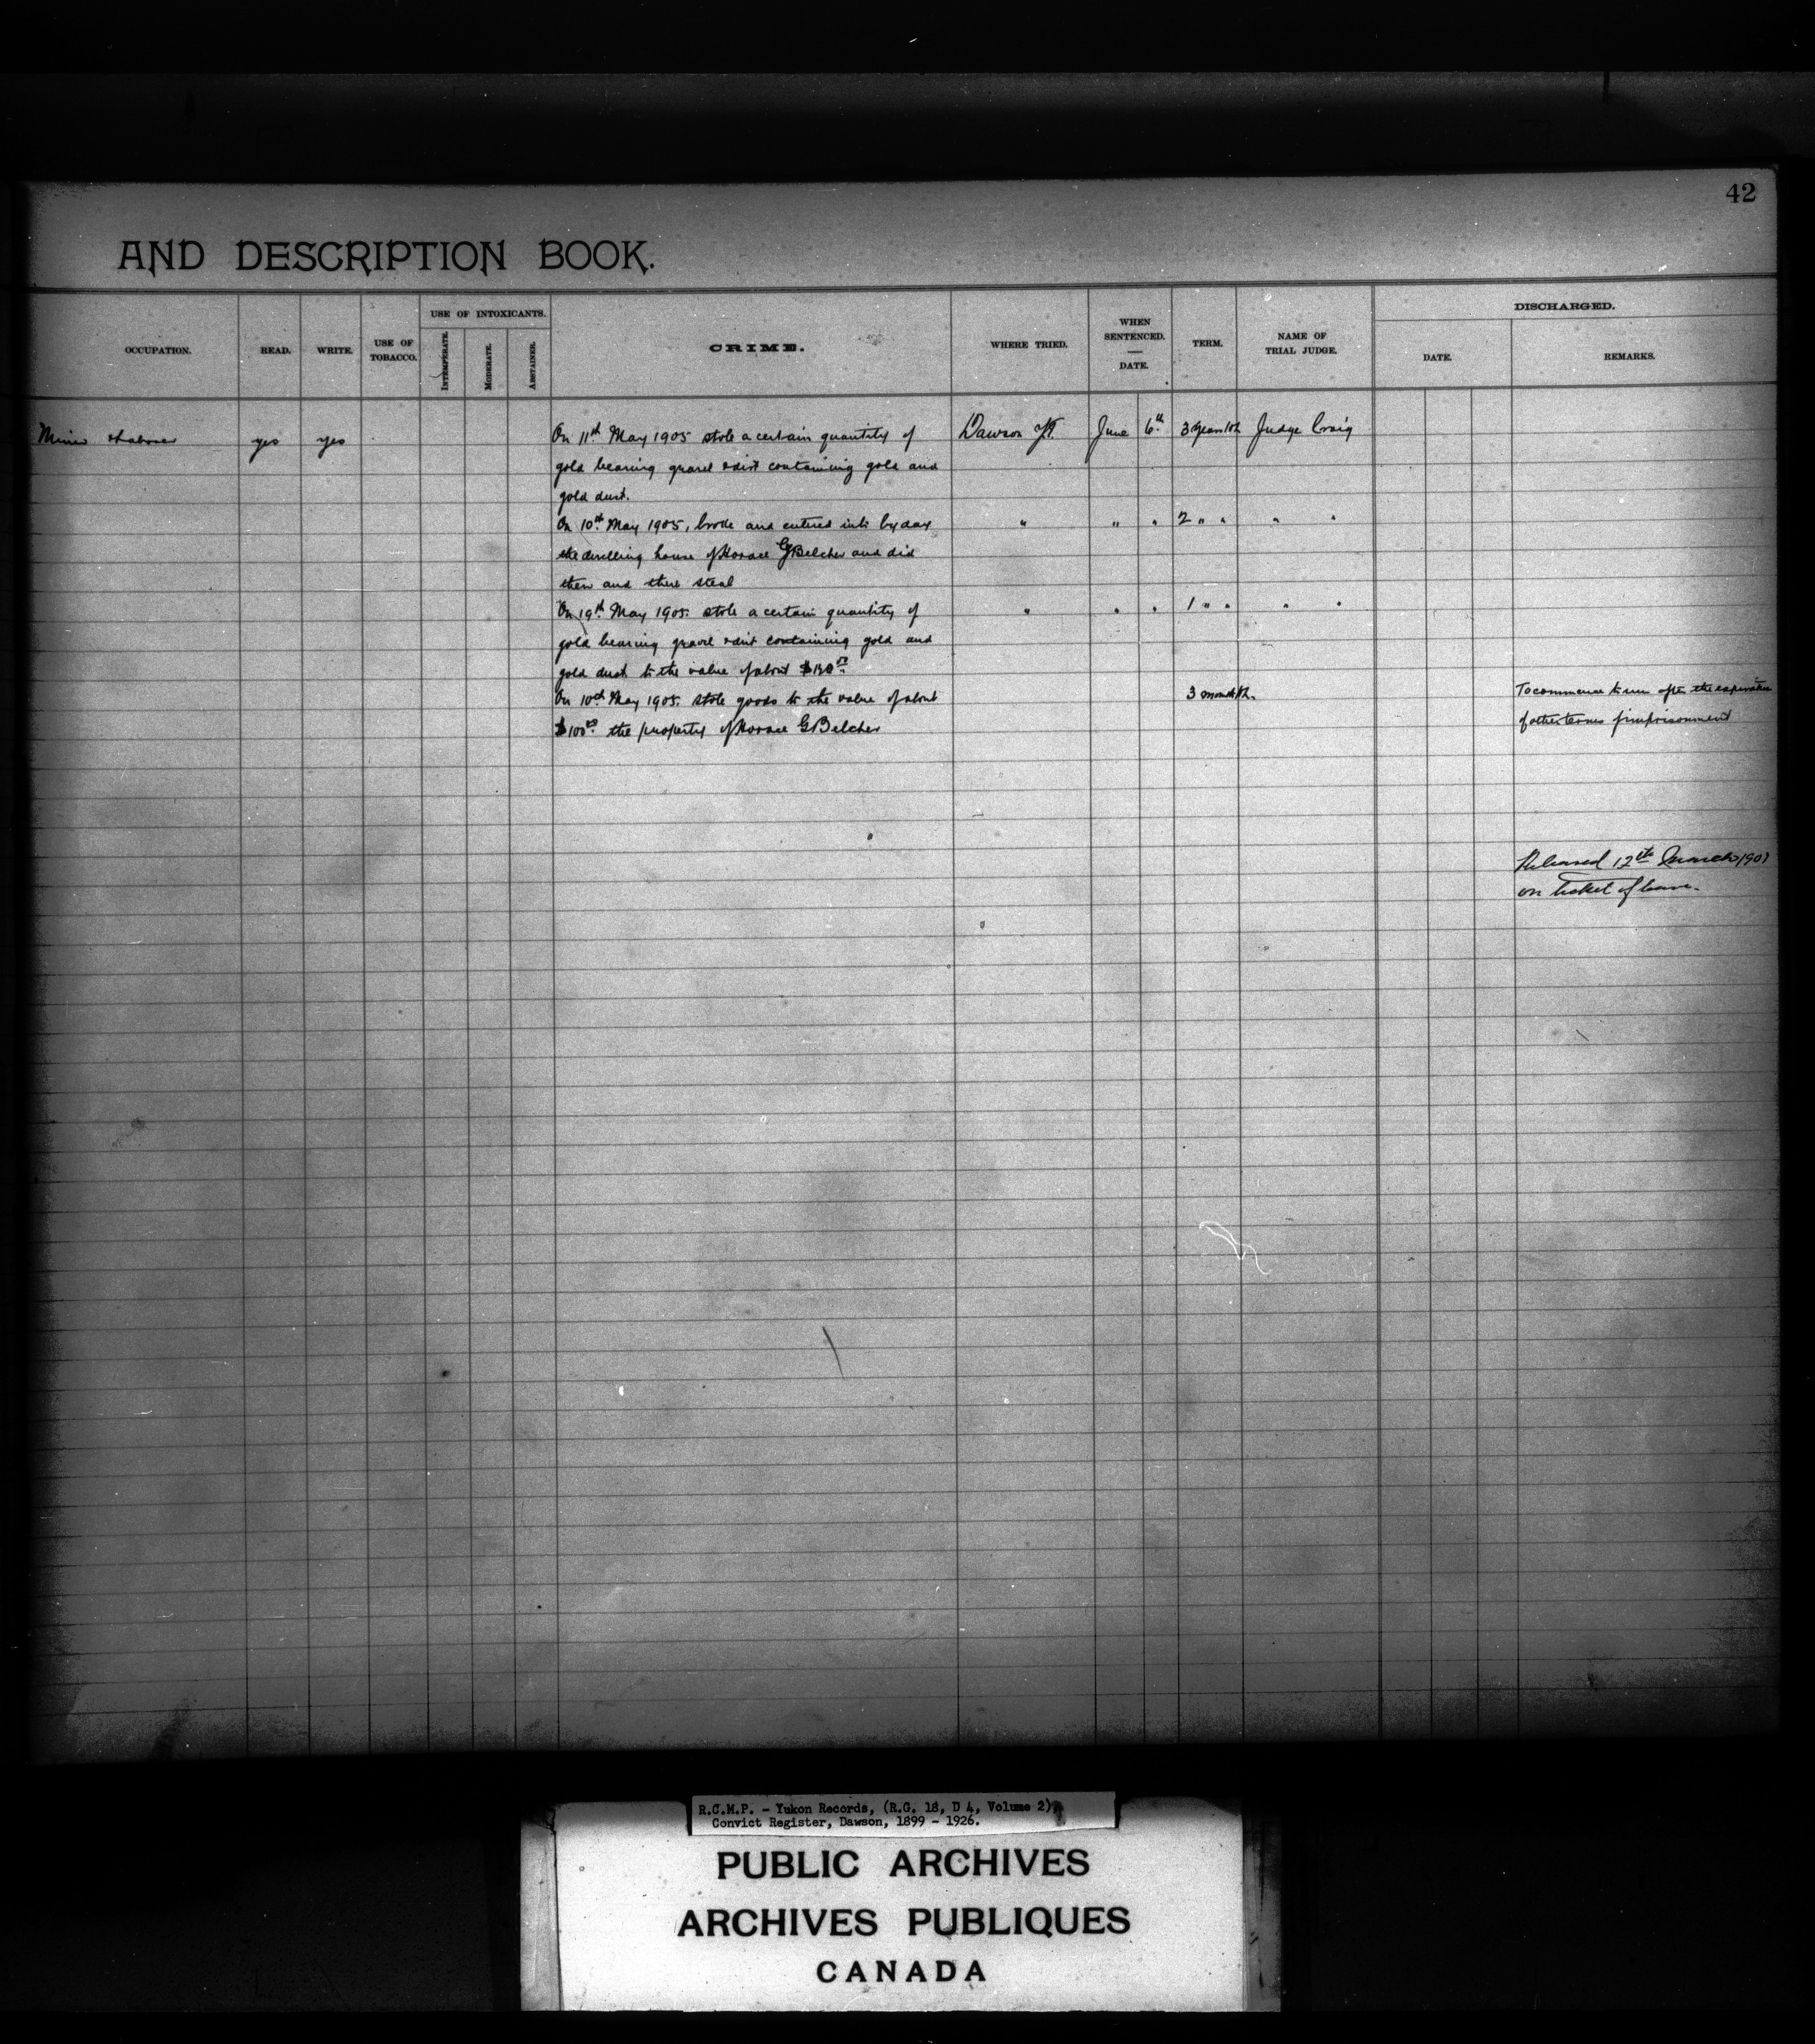 42
AND DESCRIPTION BOOK.
OCCUPATION. READ. WRITE. USE OF TOBACCO. USE OF INTOXICANTS. INTEMPERATE. MODERATE. ABSTAINER. CRIME. WHERE TRIED. WHEN SENTENCED. DATE. TERM. NAME OF TRIAL JUDGE. DISCHARGED. DATE. REMARKS.
Miner & laborer yes yes On 11th May 1905 stole a certain quantity of Dawson Y.T. June 6th 3 years Judge Craig
gold bearing gravel & dirt containing gold and
gold dust.
On 10th May 1905, broke and entered into by day " " " 2 " " " "
the dwelling house of Horace G Belcher and did
then and there steal
On 19th May 1905. stole a certain quantity of " " " 1 " " " "
gold bearing gravel & dirt containing gold and
gold dust to the value of about
On 10th May 1905. stole goods to the value of about 3 months. To commence to run after the expiration
$100.00 the property of Horace G Belcher of other terms of imprisonment
Released 12th March
on ticket of leave.
R.C.M.P. - Yukon Records, (R.G. 18, D 4, Volume 2),
Convict Register, Dawson, 1899 - 1926.
PUBLIC ARCHIVES
ARCHIVES PUBLIQUES
CANADA